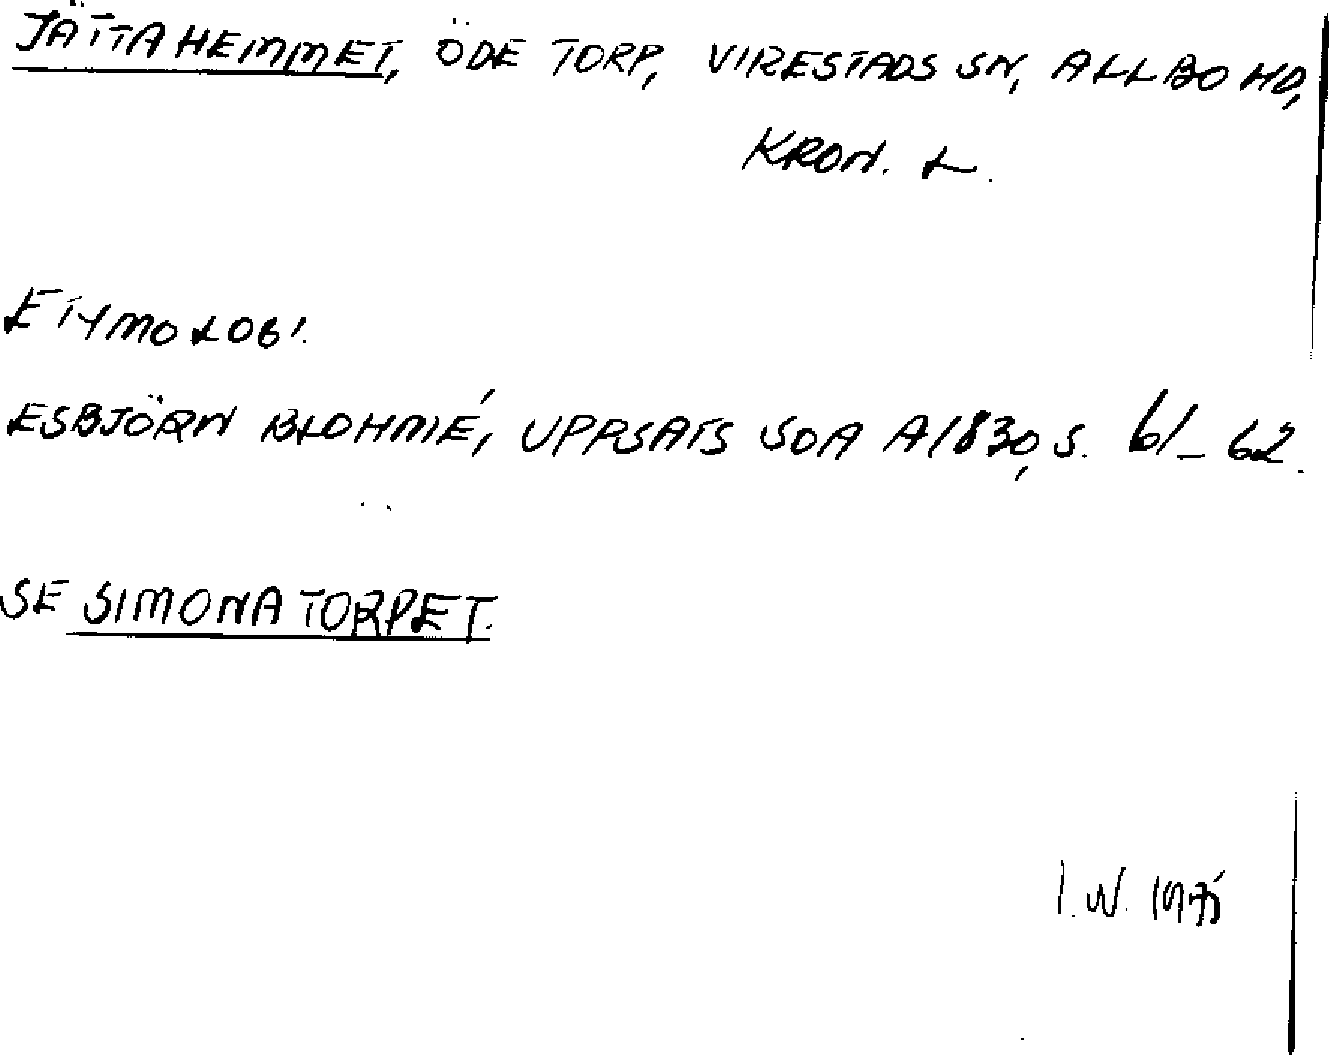 JÄTTAHEMMET, ÖDE TORP, VIRESTADS SN, ALLBO HD,
KRON. L.
ETYMOLOGI.
ESBJÖRN BLOHMÉ, UPPSATS SOA A1830, S. 61-62.
SE SIMONATORPET.
I. W.